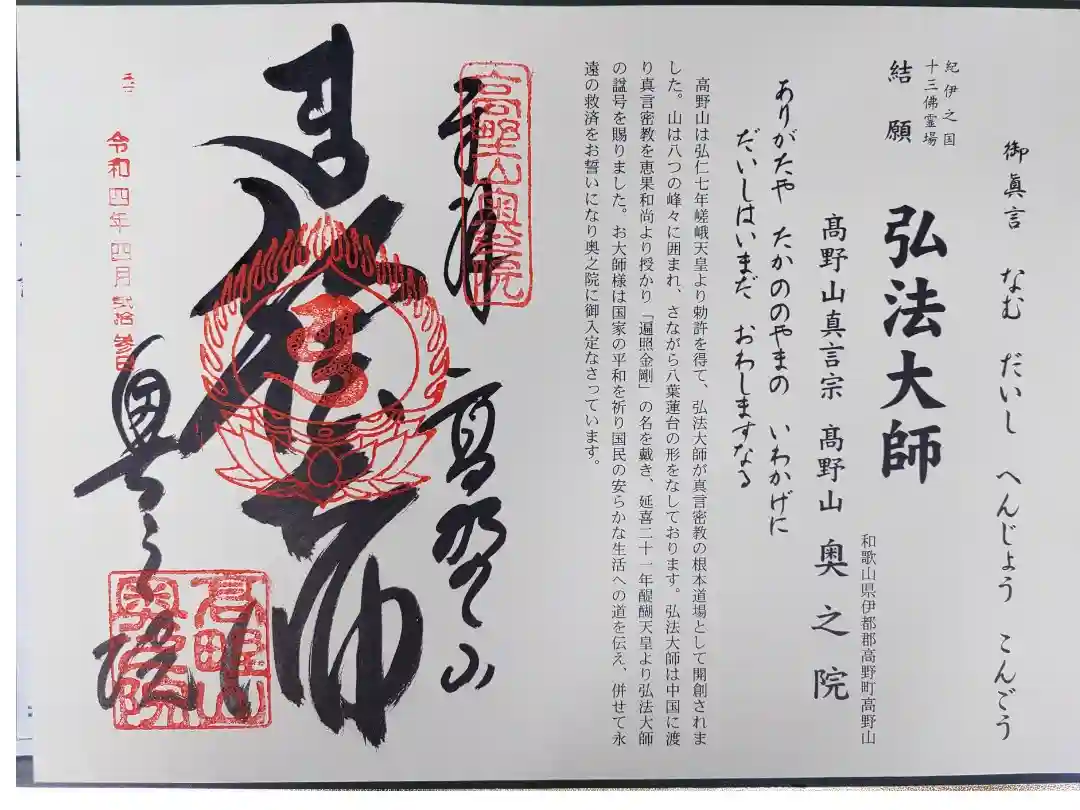 御眞言 なむ だいし へんじょう こんごう
紀伊之国
十三佛霊場
結願 弘法大師
和歌山県伊都郡高野町高野山
髙野山真言宗 髙野山 奥之院
ありがたや たかののやまの いわかげに
だいしはいまだ おわしますなる
高野山は弘仁七年嵯峨天皇より勅許を得て、弘法大師が真言密教の根本道場として開創されま
した。山は八つの峰々に囲まれ、さながら八葉蓮台の形をなしております。弘法大師は中国に渡
り真言密教を恵果和尚より授かり「遍照金剛」の名を戴き、延喜二十一年醍醐天皇より弘法大師
の諡号を賜りました。お大師様は国家の平和を祈り国民の安らかな生活への道を伝え、併せて永
遠の救済をお誓いになり奥之院に御入定なさっています。
奉拝 高野山
高野山奥之院
令和四年四月弐拾参日
奥之院
高野山
奥之院